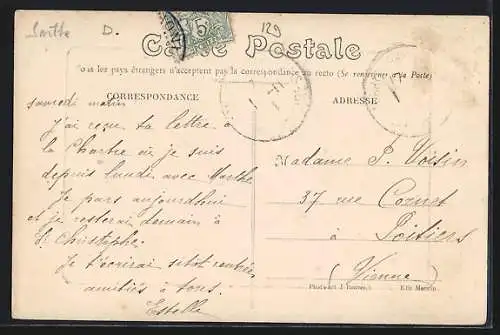 Sarthe D. 129
Carte Postale
Tous les pays étrangers n'acceptent pas la correspondance au recto (Se renseigner à la Poste)
CORRESPONDANCE
samedi matin
J'ai reçu ta lettre à
la Chartre où je suis
depuis lundi avec Marthe
Je pars aujourdhui
et je resterai demain à
St Christophe.
Je t'écrirai sitot rentrée
amitiés à tous.
Estelle
ADRESSE
Madame P. Voisin
37 rue Cornet
à
Poitiers
(Vienne)